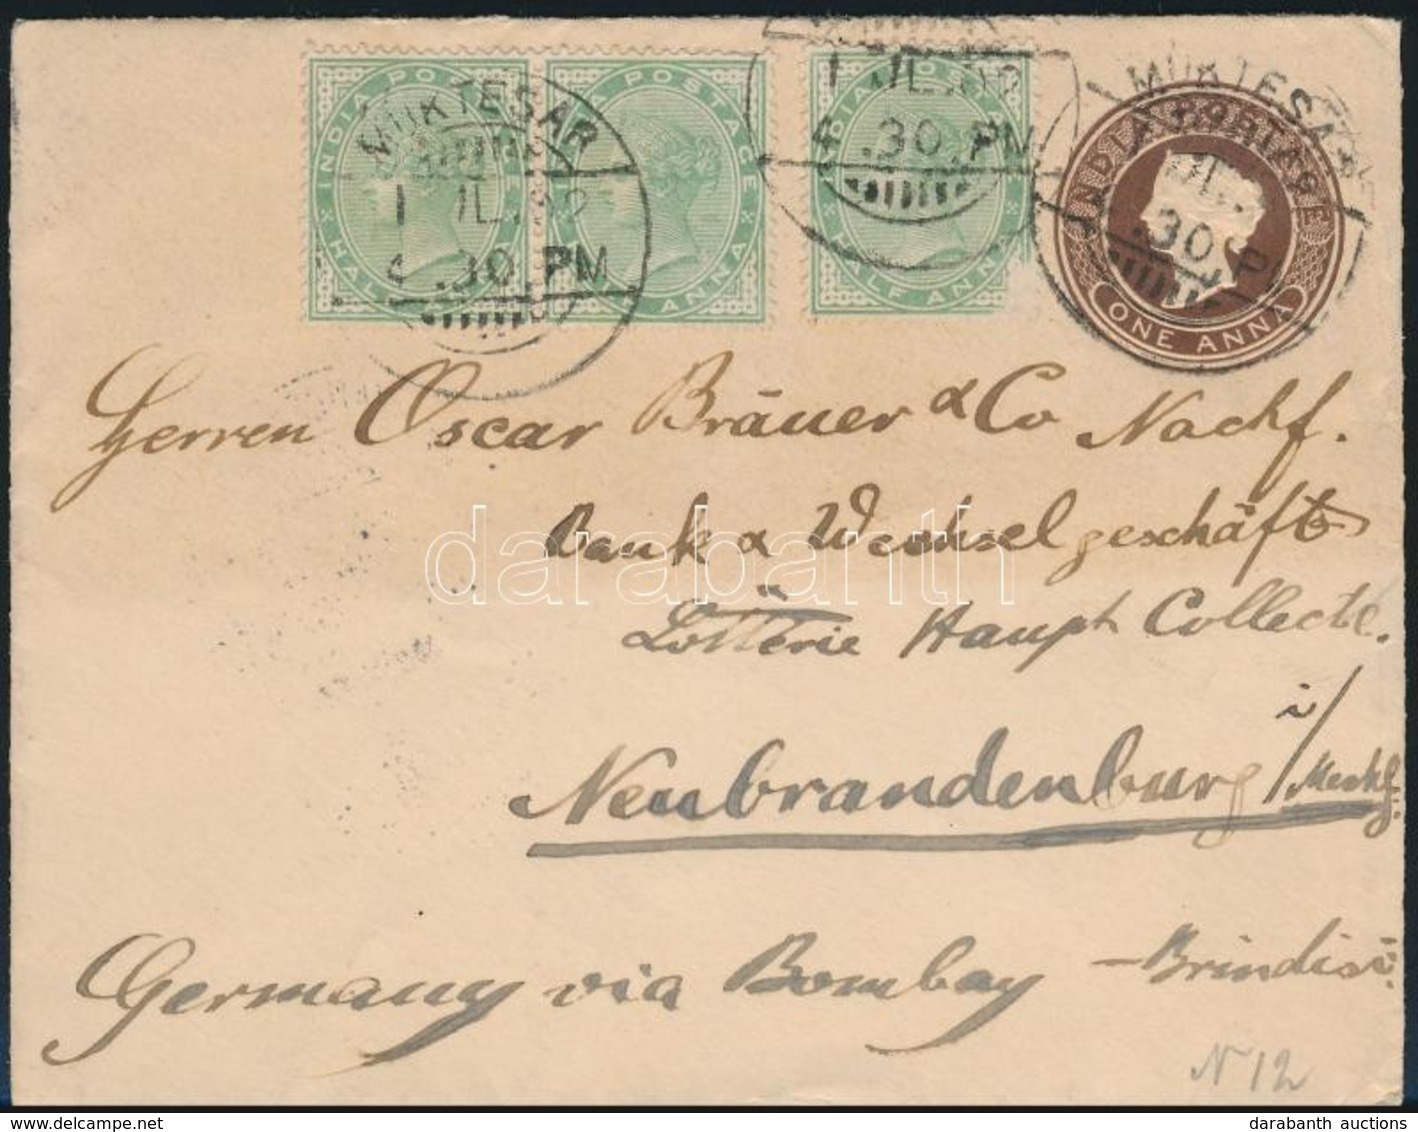 INDIA POSTAGE
HALF ANNA
INDIA POSTAGE
HALF ANNA
INDIA POSTAGE
HALF ANNA
INDIA POSTAGE
ONE ANNA
MUKTESAR
1 JL.02
4.30 PM
1 JL.02
4.30 PM
MUKTESAR
.30 P
Herren Oscar Bräuer & Co Nachf.
Bank & Wechselgeschäft
Lotterie Haupt Collecte.
Neubrandenburg i/Meckl.
Germany via Bombay – Brindisi
N 12
darabanth
darabanth auctions